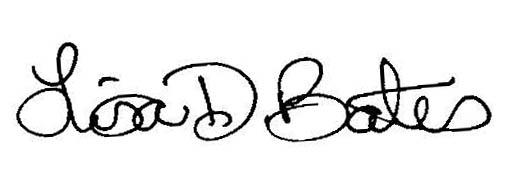 Lisa D Bates